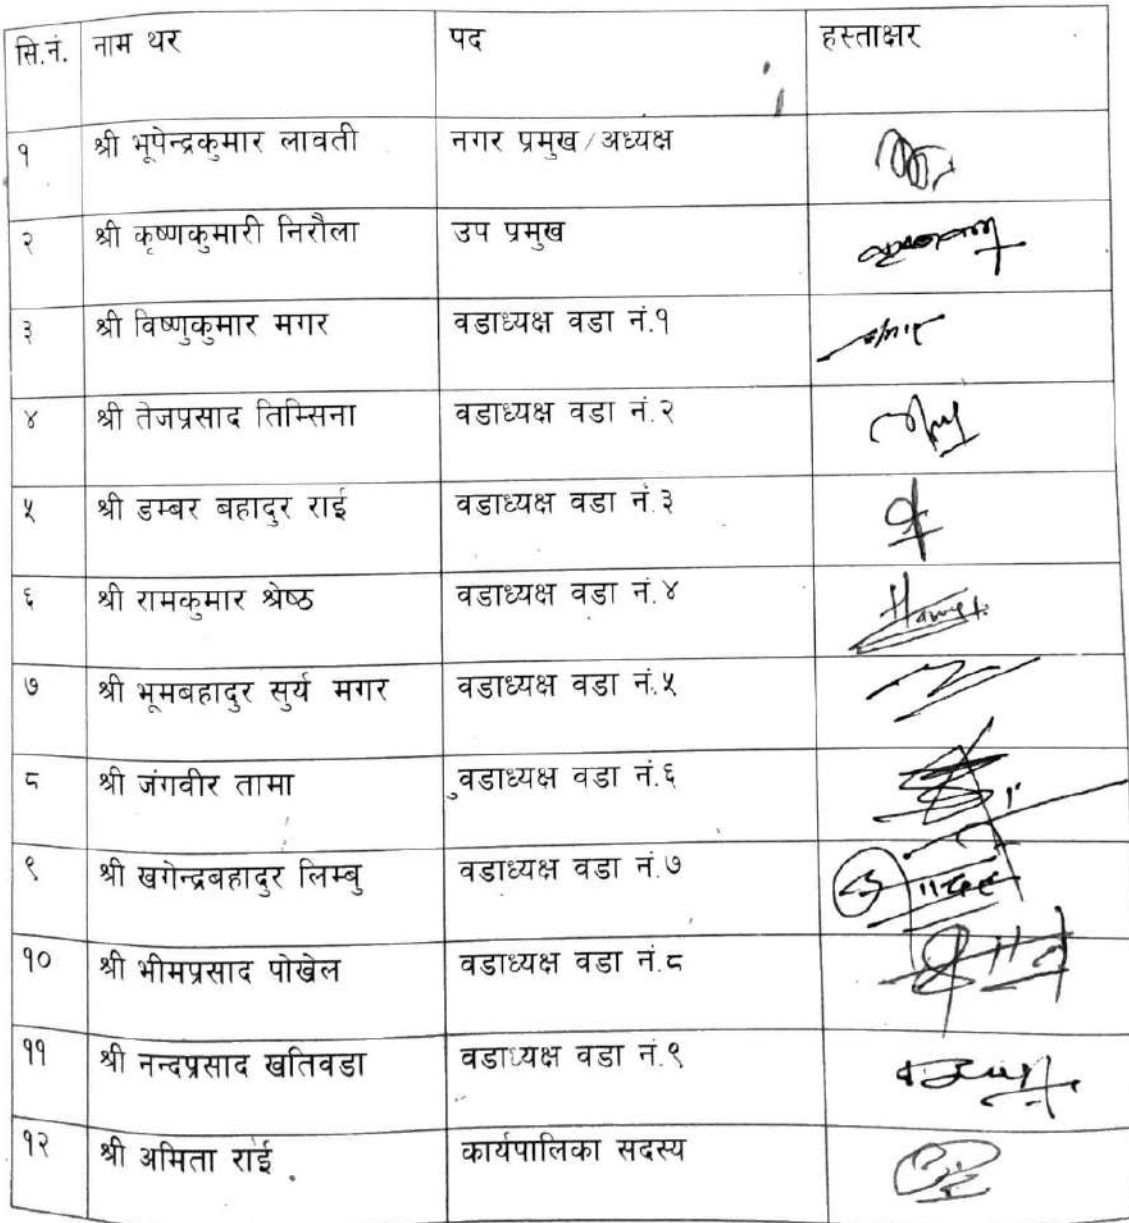 सि.नं. नाम थर पद हस्ताक्षर
१ श्री भूपेन्द्रकुमार लावती नगर प्रमुख/अध्यक्ष
२ श्री कृष्णकुमारी निरौला उप प्रमुख
३ श्री विष्णुकुमार मगर वडाध्यक्ष वडा नं.१
४ श्री तेजप्रसाद तिम्सिना वडाध्यक्ष वडा नं.२
५ श्री डम्बर बहादुर राई वडाध्यक्ष वडा नं.३
६ श्री रामकुमार श्रेष्ठ वडाध्यक्ष वडा नं.४
७ श्री भूमबहादुर सुर्य मगर वडाध्यक्ष वडा नं.५
८ श्री जंगवीर तामा वडाध्यक्ष वडा नं.६
९ श्री खगेन्द्रबहादुर लिम्बु वडाध्यक्ष वडा नं.७
१० श्री भीमप्रसाद पोखेल वडाध्यक्ष वडा नं.८
११ श्री नन्दप्रसाद खतिवडा वडाध्यक्ष वडा नं.९
१२ श्री अमिता राई कार्यपालिका सदस्य